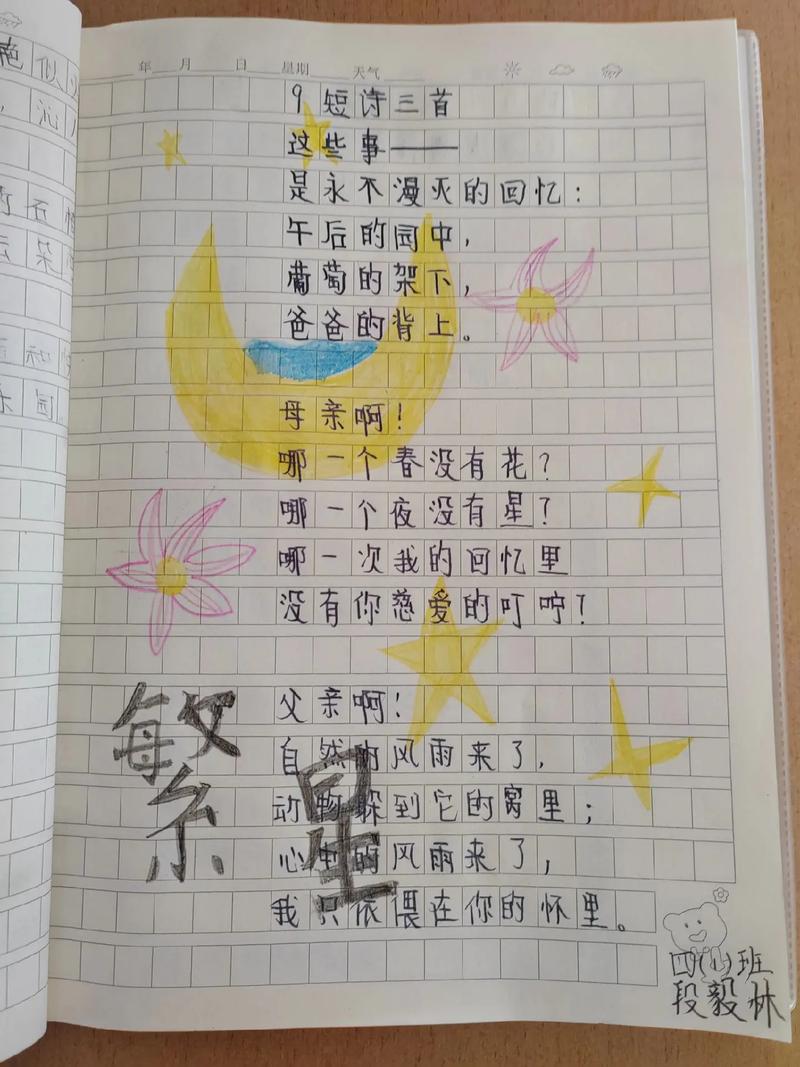 年 月 日 星期 天气
9 短诗三首
这些事——
是永不漫灭的回忆：
午后的园中，
葡萄的架下，
爸爸的背上。
母亲啊！
哪一个春没有花？
哪一个夜没有星？
哪一次我的回忆里
没有你慈爱的叮咛？
父亲啊！
自然的风雨来了，
动物躲到它的窝里；
心中的风雨来了，
我只依偎在你的怀里。
繁星
四(1)班
段毅林